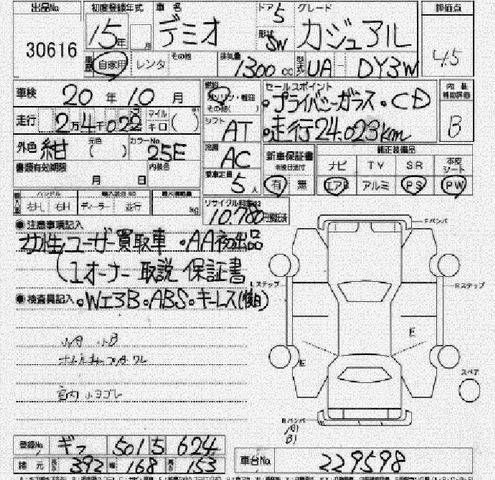 出品No 初度登録年式 車名 ドア 5 グレード 評価点
30616 15年 月 デミオ 形状 SW カジュアル 4.5
自家用 レンタ その他 排気量 1300cc 型式 UA-DY3W
車検 20年10月 セールスポイント
ガソリン・軽油 ・プライバシーガラス・CD
走行 2万4千023 マイル キロ ( ) シフト AT ・走行24.023km B
外色 紺 元色 ( ) カラーNo 25E 冷房 AC 新車保証書 純正装備品
書類有効期限 月 日 内装色 乗車定員 5人 有 無 ナビ TV SR 本皮シート
エアB アルミ PS PW
右H 左H ディーラー 並行 kg リサイクル預託金 10,780円
●注意事項記入
女性ユーザー買取車・AA初出品
(1オーナー 取説 保証書
●検査員記入 ・WエアB・ABS・キーレス
室内 小ヨゴレ
Fバンパー
Lステップ Rステップ
E
E スペア
Rバンパー
登録No ギフ 501 5 624 車台No 229598
諸元 長さ 392 幅 168 高さ 153